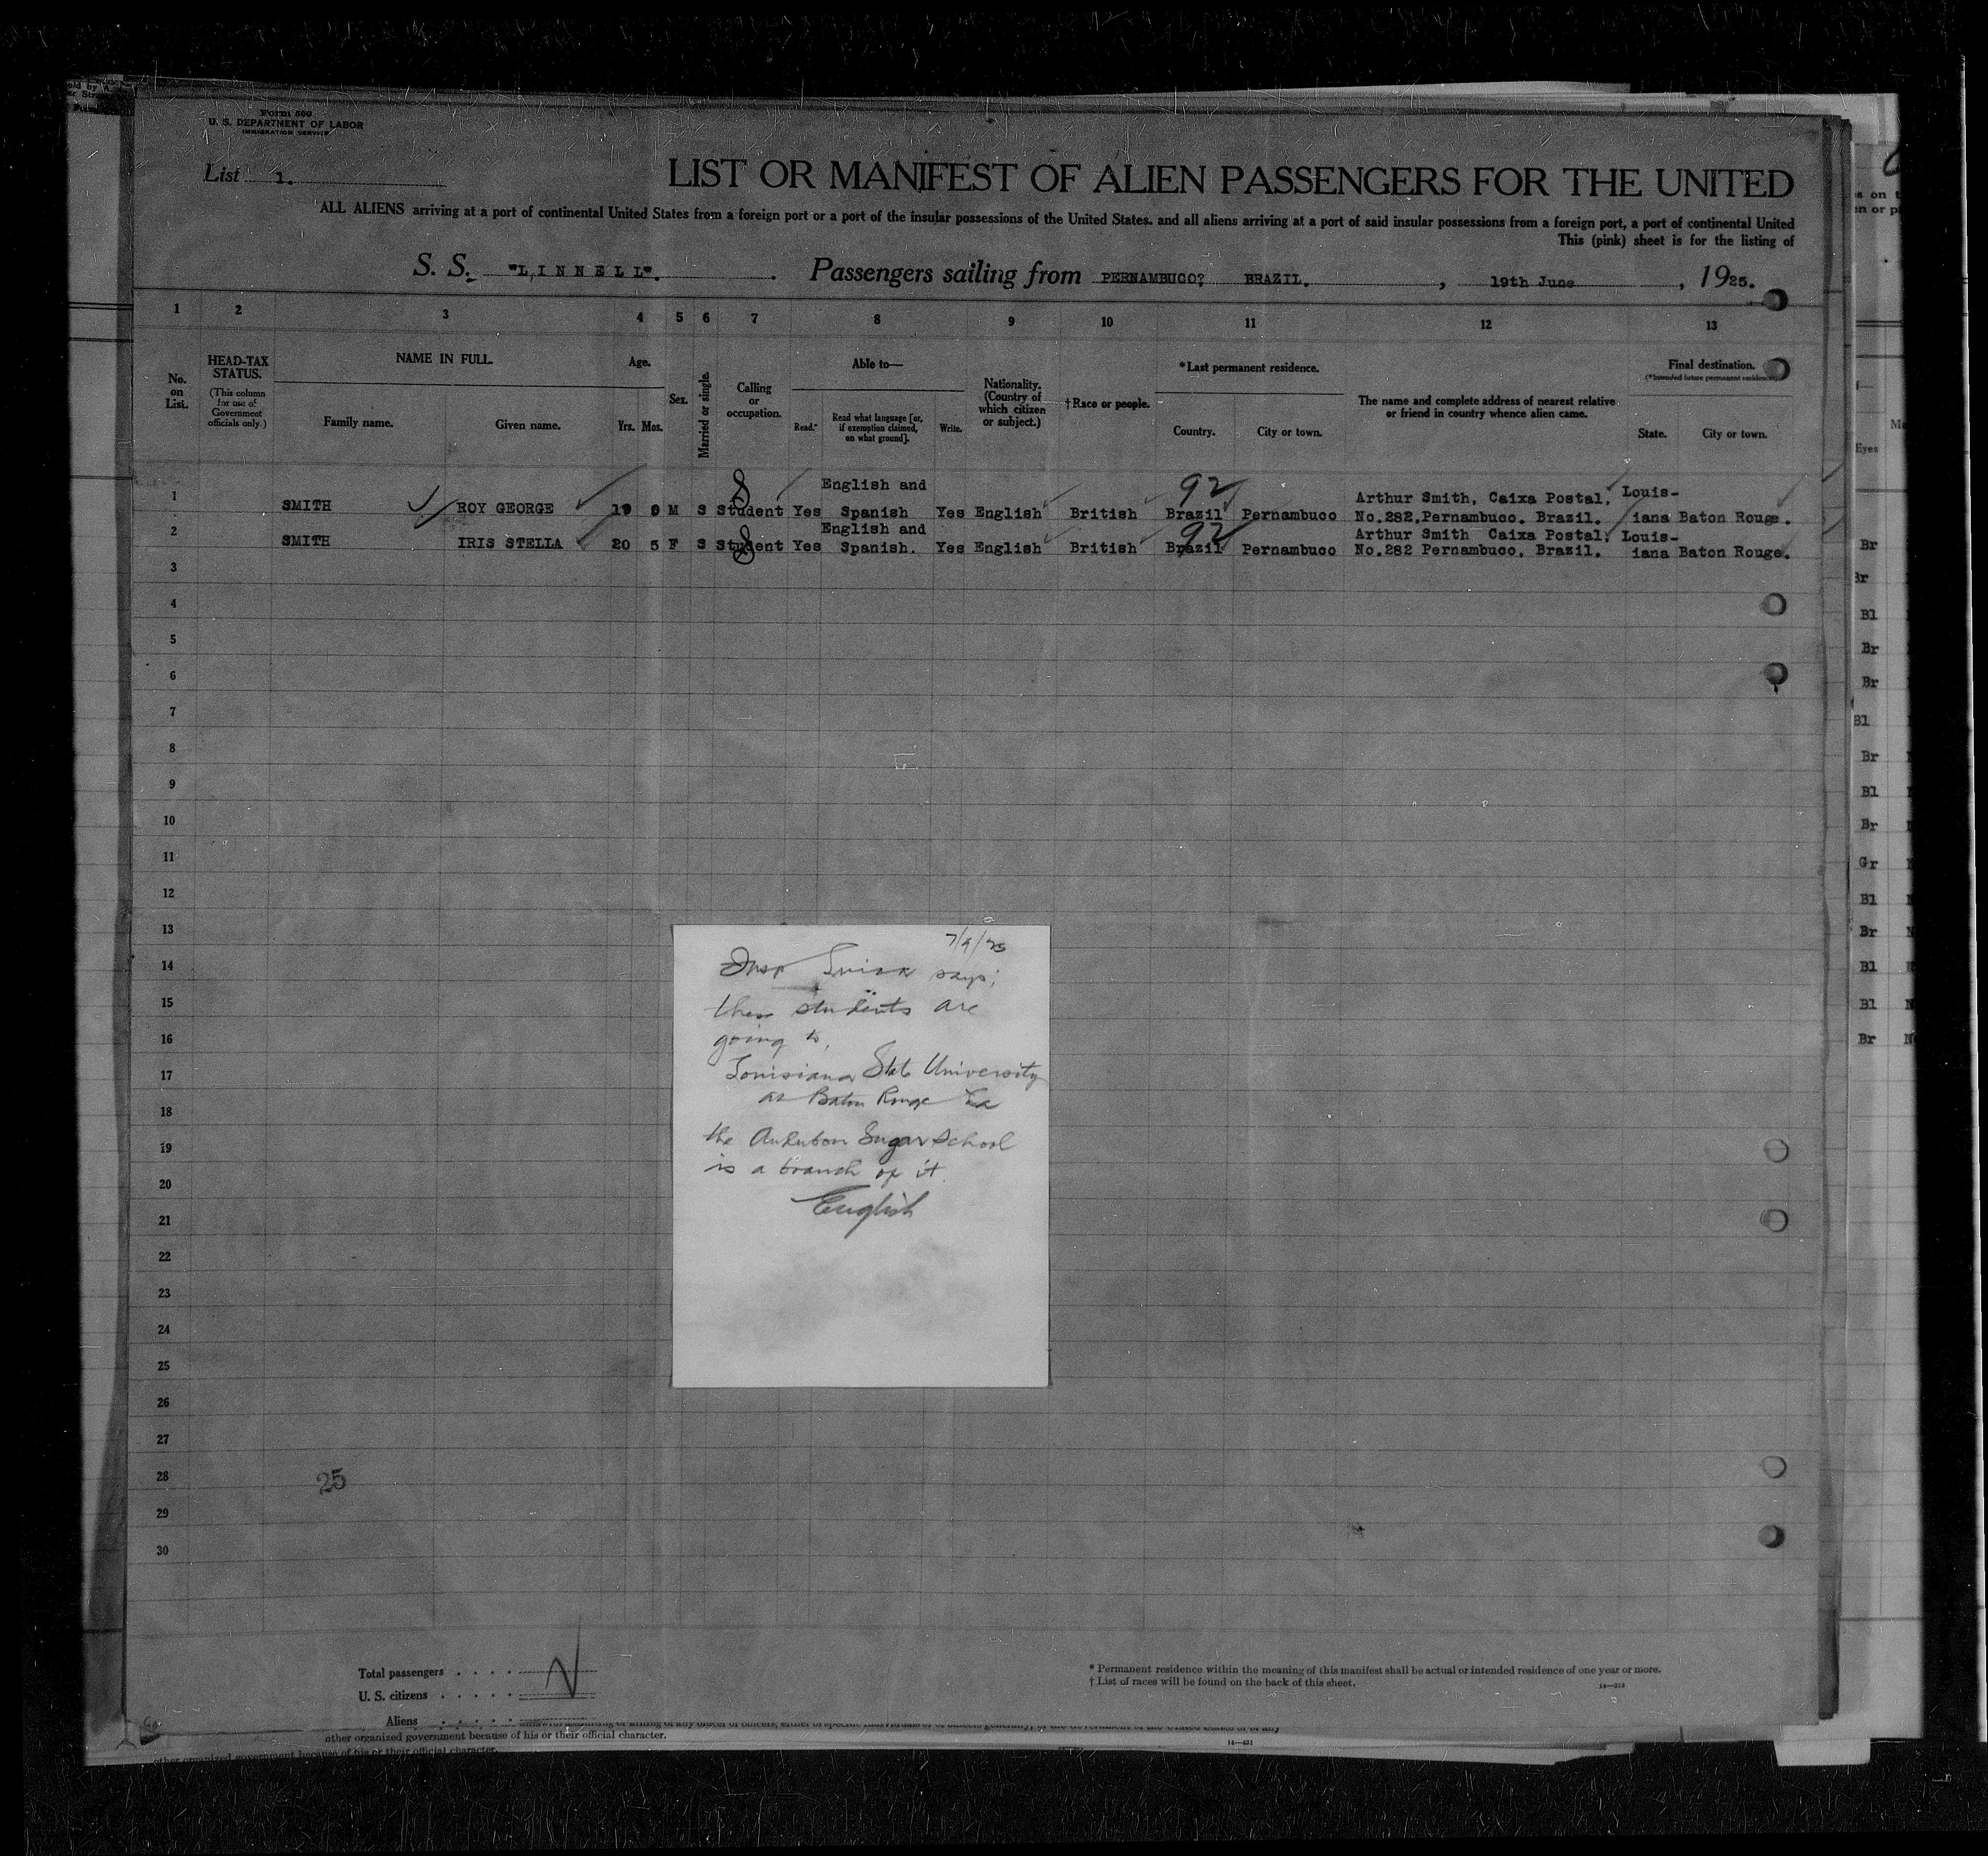 Form 500
U. S. DEPARTMENT OF LABOR
IMMIGRATION SERVICE
List 1.
LIST OR MANIFEST OF ALIEN PASSENGERS FOR THE UNITED
ALL ALIENS arriving at a port of continental United States from a foreign port or a port of the insular possessions of the United States, and all aliens arriving at a port of said insular possessions from a foreign port, a port of continental United
This (pink) sheet is for the listing of
S. S. "LINNELL". Passengers sailing from PERNAMBUCO? BRAZIL. , 19th June , 1925.
1 2 3 4 5 6 7 8 9 10 11 12 13
No. on List.
HEAD-TAX STATUS.
(This column for use of Government officials only.)
NAME IN FULL.
Family name. Given name.
Age.
Yrs. Mos.
Sex.
Married or single.
Calling or occupation.
Able to—
Read. Read what language [or, if exemption claimed, on what ground]. Write.
Nationality. (Country of which citizen or subject.)
†Race or people.
*Last permanent residence.
Country. City or town.
The name and complete address of nearest relative or friend in country whence alien came.
Final destination.
(*Intended future permanent residence)
State. City or town.
1 SMITH ROY GEORGE 19 9 M S Student Yes English and Spanish Yes English British Brazil Pernambuco Arthur Smith, Caixa Postal, No.282.Pernambuco. Brazil. Louisiana Baton Rouge.
92
2 SMITH IRIS STELLA 20 5 F S Student Yes English and Spanish. Yes English British Brazil Pernambuco Arthur Smith Caixa Postal, No.282 Pernambuco, Brazil. Louisiana Baton Rouge.
92
3
4
5
6
7
8
9
10
11
12
13
14
15
16
17
18
19
20
21
22
23
24
25
26
27
28
29
30
7/9/25
Insp says;
these students are
going to,
Louisiana State University
at Baton Rouge La
the Audubon Sugar School
is a branch of it
English
25
Total passengers
U. S. citizens
Aliens
* Permanent residence within the meaning of this manifest shall be actual or intended residence of one year or more.
† List of races will be found on the back of this sheet.
other organized government because of his or their official character.
other organized government because of his or their official character.
Eyes
Br
Br
Bl
Br
Br
Bl
Br
Bl
Br
Gr
Bl
Br
Bl
Bl
Br